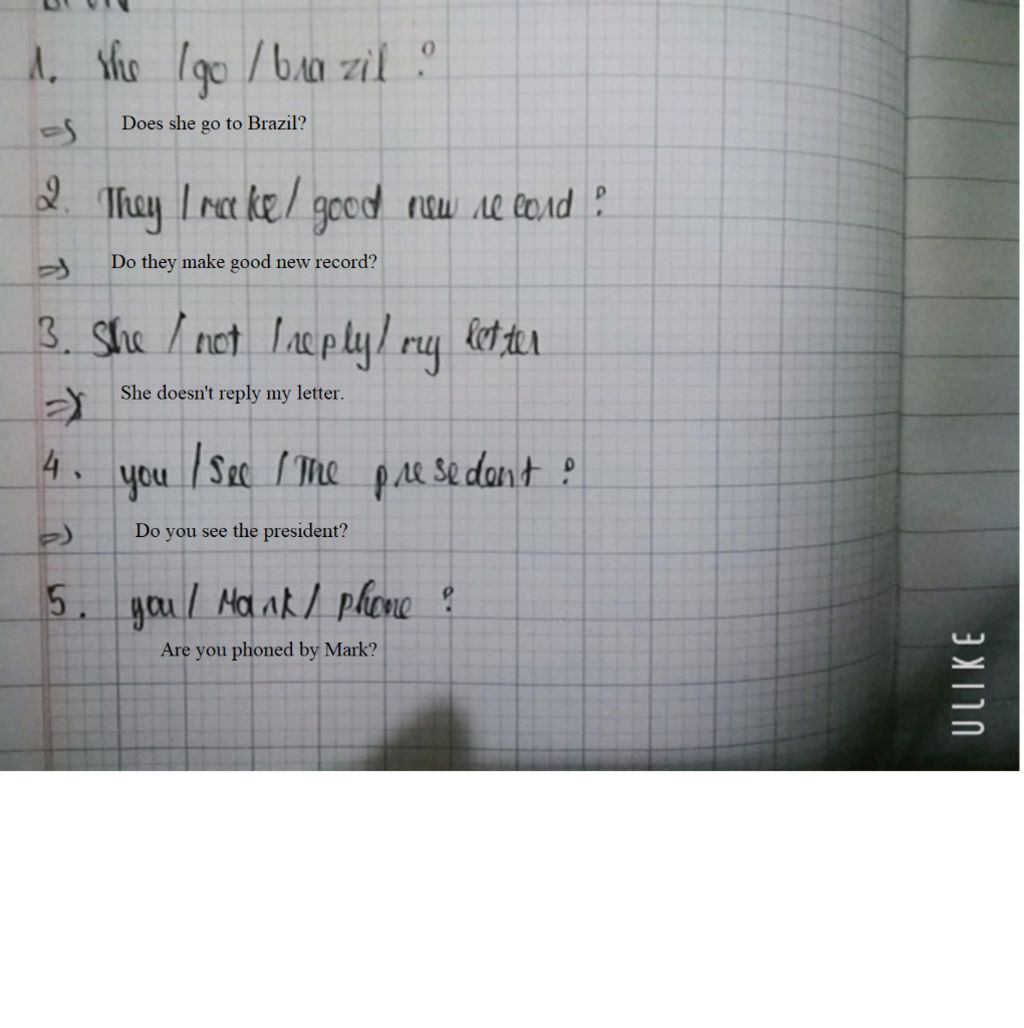 1. She / go / brazil ?
=> Does she go to Brazil?
2. They / make / good new record ?
=> Do they make good new record?
3. She / not / reply / my letter
=> She doesn't reply my letter.
4. you / See / The presedent ?
=> Do you see the president?
5. you / Mark / phone ?
Are you phoned by Mark?
ULIKE